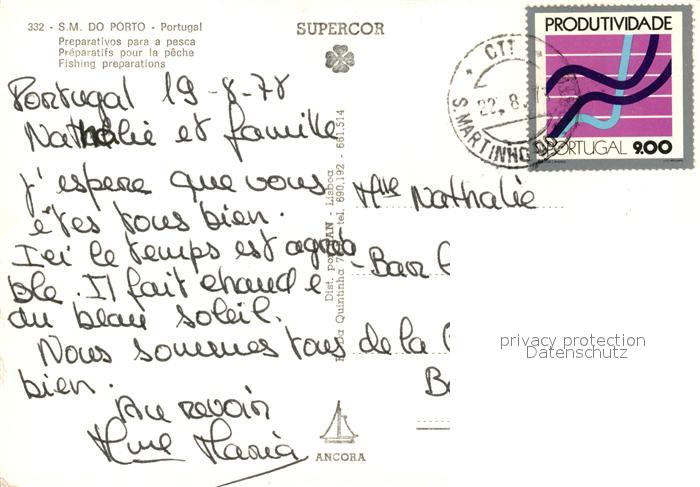 332 - S.M. DO PÓRTO - Portugal
Preparativos para a pesca
Préparatifs pour la pêche
Fishing preparations
SUPERCOR
PRODUTIVIDADE
PORTUGAL 9.00
CTT
S. MARTINHO DO
22. 8.
Portugal 19-8-78
Nathalie et famille
J'espere que vous
êtes tous bien.
Ici le temps est agréa
ble. Il fait chaud e
du beau soleil.
Nous sommes tous
bien.
Au revoir
Mme Maria
Dist. - Lisboa
Quintinha tel. 690.192 - 661.514
ANCORA
Mlle Nathalie
Bar
de la
privacy protection
Datenschutz